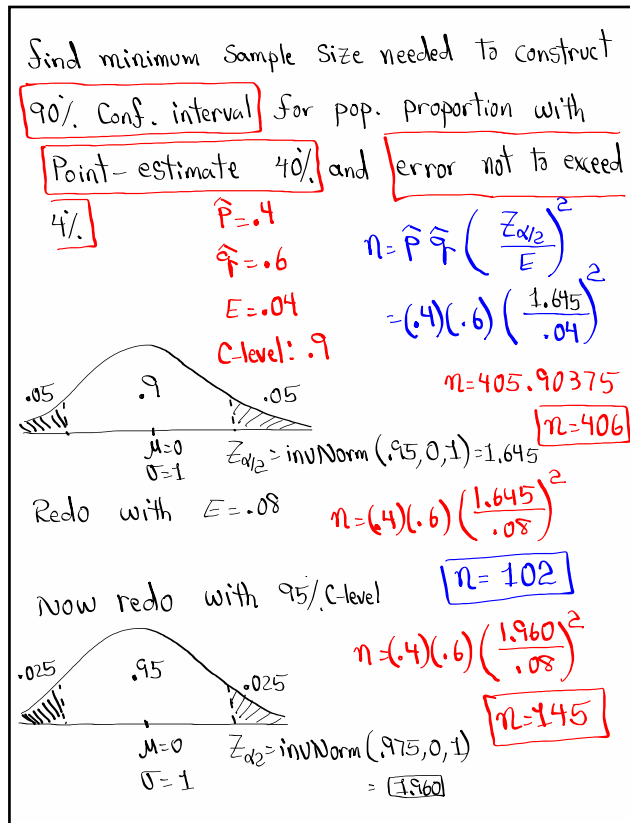 find minimum sample size needed to construct
90% Conf. interval for pop. proportion with
Point-estimate 40% and error not to exceed
4%
p̂=.4
q̂=.6
E=.04
C-level: .9
n=p̂ q̂ (Zα/2 / E)²
=(.4)(.6)(1.645/.04)²
n=405.90375
n=406
.05 .9 .05
μ=0
σ=1
Zα/2=invNorm(.95,0,1)=1.645
Redo with E=.08
n=(.4)(.6)(1.645/.08)²
n=102
Now redo with 95% C-level
n=(.4)(.6)(1.960/.08)²
n=145
.025 .95 .025
μ=0
σ=1
Zα2=invNorm(.975,0,1)
= 1.960